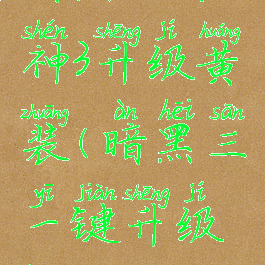 shén shēng jí huáng
神3升级黄
zhuāng àn hēi sān
装(暗黑三
yī jiàn shēng jí
一键升级